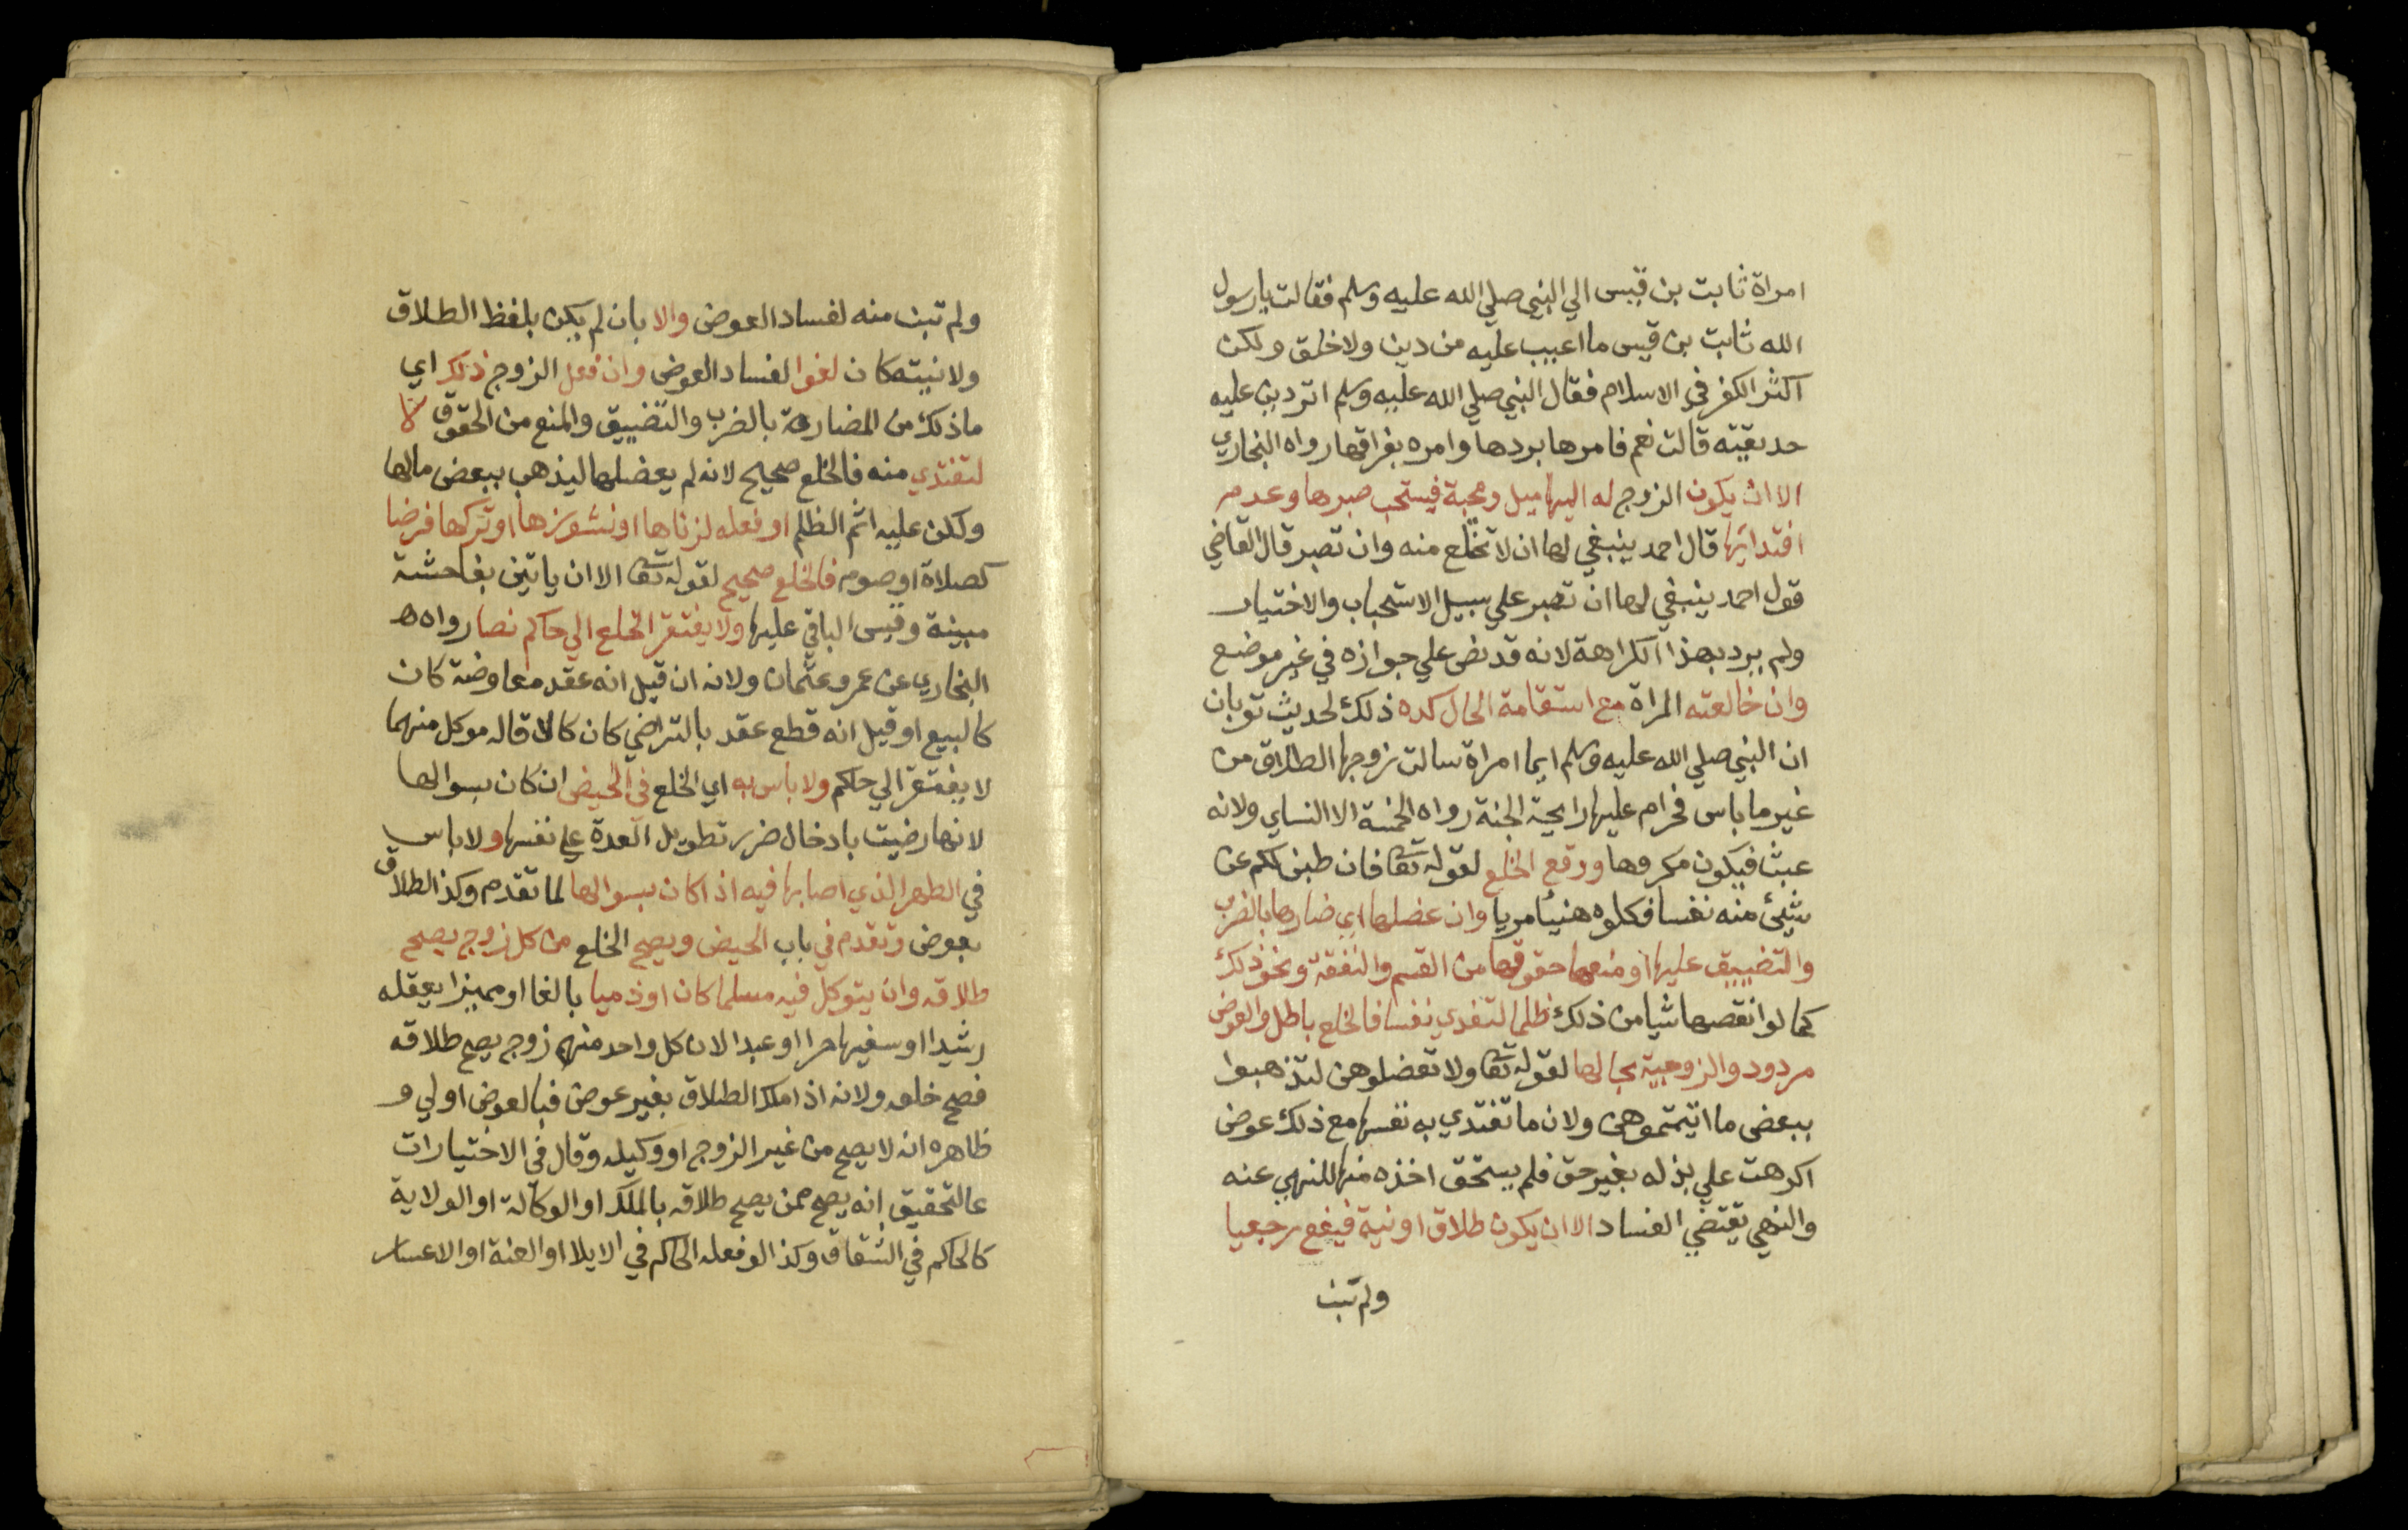 امراة ثابت بن قيس الي النبي صلي الله عليه وسلم فقالت يا رسول
الله ثابت بن قيس ما اعيب عليه من دين ولا خلق ولكن
اكثر الكفر في الاسلام فقال النبي صلي الله عليه وسلم اتردين عليه
حديقته قالت نعم فامرها بردها وامره بفراقها رواه البخاري
الا ان يكون الزوج له اليها ميل ومحبة فيستحب صبرها وعدم
افتدائها قال احمد ينبغي لها ان لا تختلع منه وان تصبر قال القاضي
قول احمد ينبغي لها ان تصبر علي سبيل الاستحباب والاختيار
ولم يرد بهذا الكراهة لانه قد نص علي جوازه في غير موضع
وان خالعته المراة مع استقامة الحال كره ذلك لحديث ثوبان
ان النبي صلي الله عليه وسلم ايما امراة سالت زوجها الطلاق من
غير ما باس فحرام عليها رايحة الجنة رواه الخمسة الا النساي ولانه
عبث فيكون مكروها ووقع الخلع لقوله تعا فان طبن لكم عن
شيئ منه نفسا فكلوه هنيئا مريا وان عضلها اي ضارها بالضرب
والتضييق عليها او منعها حقوقها من القسم والنفقة ونحو ذلك
كما لو انقصها شيا من ذلك ظلما لتفدي نفسا فالخلع باطل والعوض
مردود والزوجية بحالها لقوله تعا ولا تعضلوهن لتذهبوا
ببعض ما اتيتموهن ولان ما تفتدي به نفسها مع ذلك عوض
اكرهت علي بذله بغير حق فلم يستحق اخذه منها للنهي عنه
والنهي يقتضي الفساد الا ان يكون طلاق او نية فيقع رجعيا
ولم تبن
ولم تبن منه لفساد العوض والا بان لم يكن بلفظ الطلاق
ولا نيته كان لغوا لفساد العوض وان فعل الزوج ذلك اي
ما ذلك من المضارة بالضرب والتضييق والمنع من الحقوق لا
لتفتدي منه فالخلع صحيح لانه لم يعضلها ليذهب ببعض مالها
ولكن عليه اثم الظلم او فعله لزناها او نشوزها او تركها فرضا
كصلاة او صوم فالخلع صحيح لقوله تعا الا ان ياتين بفاحشة
مبينة وقيس الباقي عليها ولا يفتقر الخلع الي حاكم نصا رواه
البخاري عن عمر وعثمان ولانه ان قيل انه عقد معاوضة كان
كالبيع او قيل انه قطع عقد بالتراضي كان كالاقاله وكل منهما
لا يفتقر الي حاكم ولا باس به اي الخلع في الحيض ان كان بسوالها
لانها رضيت بادخال ضرر تطويل العدة علي نفسها ولا باس
في الطهر الذي اصابها فيه اذا كان بسوالها لما تقدم وكذ الطلاق
بعوض وتقدم في باب الحيض ويصح الخلع من كل زوج يصح
طلاقه وان يتوكل فيه مسلما كان او ذميا بالغا او مميزا يعقله
رشيدا او سفيها حرا او عبدا لان كل واحد منهم زوج يصح طلاقه
فصح خلعه ولانه اذا ملك الطلاق بغير عوض فبالعوض اولي و
ظاهره انه لا يصح من غير الزوج او وكيله وقال في الاختيارات
عالتحقيق انه يصح ممن يصح طلاقه بالملك او الوكالة او الولاية
كالحاكم في الشقاق وكذا لو فعله الحاكم في الايلا او العنة او الاعسار